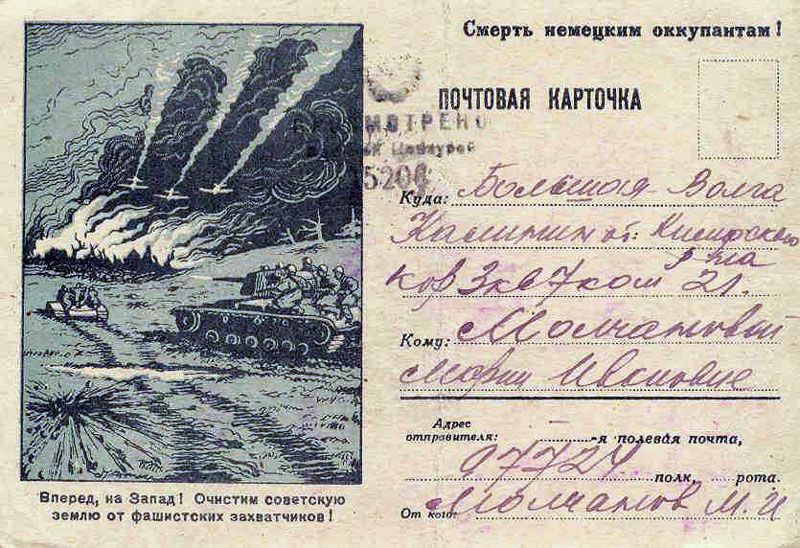 Смерть немецким оккупантам!
ПОЧТОВАЯ КАРТОЧКА
Цензурой
5204
Куда: Большая Волга
Калинин об. Кимрского
р-на
кор 3 кв 7 ком 21.
Кому: Молчановой
Марии Ивановне
Адрес
отправителя: -я полевая почта,
07724 полк, рота.
От кого: Молчанов М. И
Вперед, на Запад! Очистим советскую
землю от фашистских захватчиков!